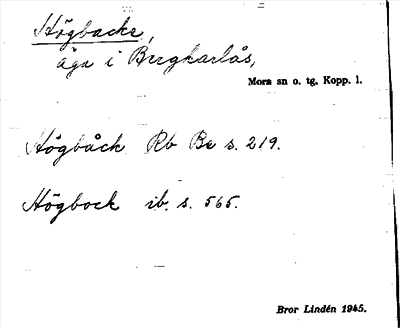 Högbacke,
äga i Bergkarlås,
Mora sn o. tg, Kopp. l.
Högbåck Rb Be s. 219.
Högbock ib. s. 565.
Bror Lindén 1945.